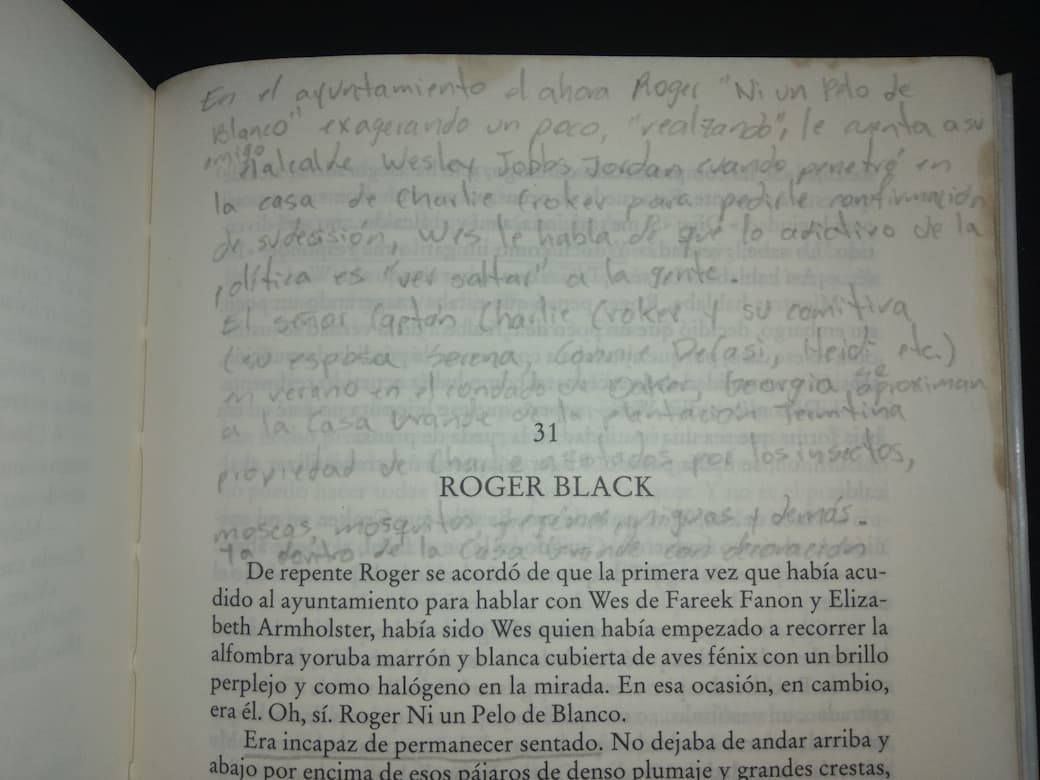 En el ayuntamiento el ahora Roger "Ni un Pelo de
Blanco" exagerando un poco, "realzando", le cuenta a su
amigo alcalde Wesley Jobbs Jordan cuando penetró en
la casa de Charlie Croker para pedirle confirmación
de su decisión, Wes le habla de que lo adictivo de la
política es "ver saltar" a la gente.
El señor Captan Charlie Croker y su comitiva
(su esposa Serena, Heidi etc.)
en verano en el condado de Baker, Georgia se aproximan
a la Casa Grande de la plantación
31
propiedad de Charlie azotados por los insectos,
ROGER BLACK
moscas, mosquitos, niguas y demás.
Ya dentro de la Casa Grande con decoración
De repente Roger se acordó de que la primera vez que había acu-
dido al ayuntamiento para hablar con Wes de Fareek Fanon y Eliza-
beth Armholster, había sido Wes quien había empezado a recorrer la
alfombra yoruba marrón y blanca cubierta de aves fénix con un brillo
perplejo y como halógeno en la mirada. En esa ocasión, en cambio,
era él. Oh, sí. Roger Ni un Pelo de Blanco.
Era incapaz de permanecer sentado. No dejaba de andar arriba y
abajo por encima de esos pájaros de denso plumaje y grandes crestas,